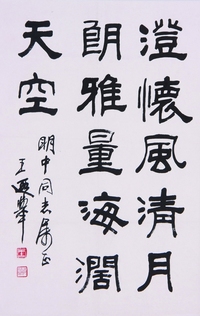 澄懷風清月
朗雅量海濶
天空
明中同志属正
王遐举